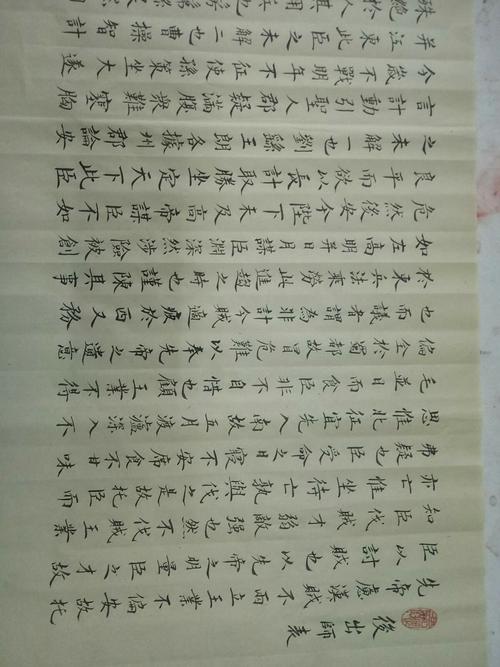 後出師表
先帝慮漢賊不兩立王業不偏安故托
臣以討賊也以先帝之明量臣之才故
知臣伐賊才弱敵強也然不伐賊王業
亦亡惟坐待亡孰與伐之是故托臣而
弗疑也臣受命之日寢不安席食不甘味
思惟北征宜先入南故五月渡瀘深入不
毛並日而食臣非不自惜也顧王業不得
偏全於蜀都故冒危難以奉先帝之遺意
也而議者為非計今賊適疲於西又務
於東兵法乘勞此進趨之時也謹陳其事
如左高明并日月謀臣淵深然涉險被創
危然後安今陛下未及高帝謀臣不如
良平而欲以長計取勝坐定天下此臣
之未解一也劉繇王朗各據州郡論安
言計動引聖人群疑滿腹衆難塞胸
今歲不戰明年不征使孫策坐大遂
并江東此臣之未解二也曹操智計
殊絕於人其用